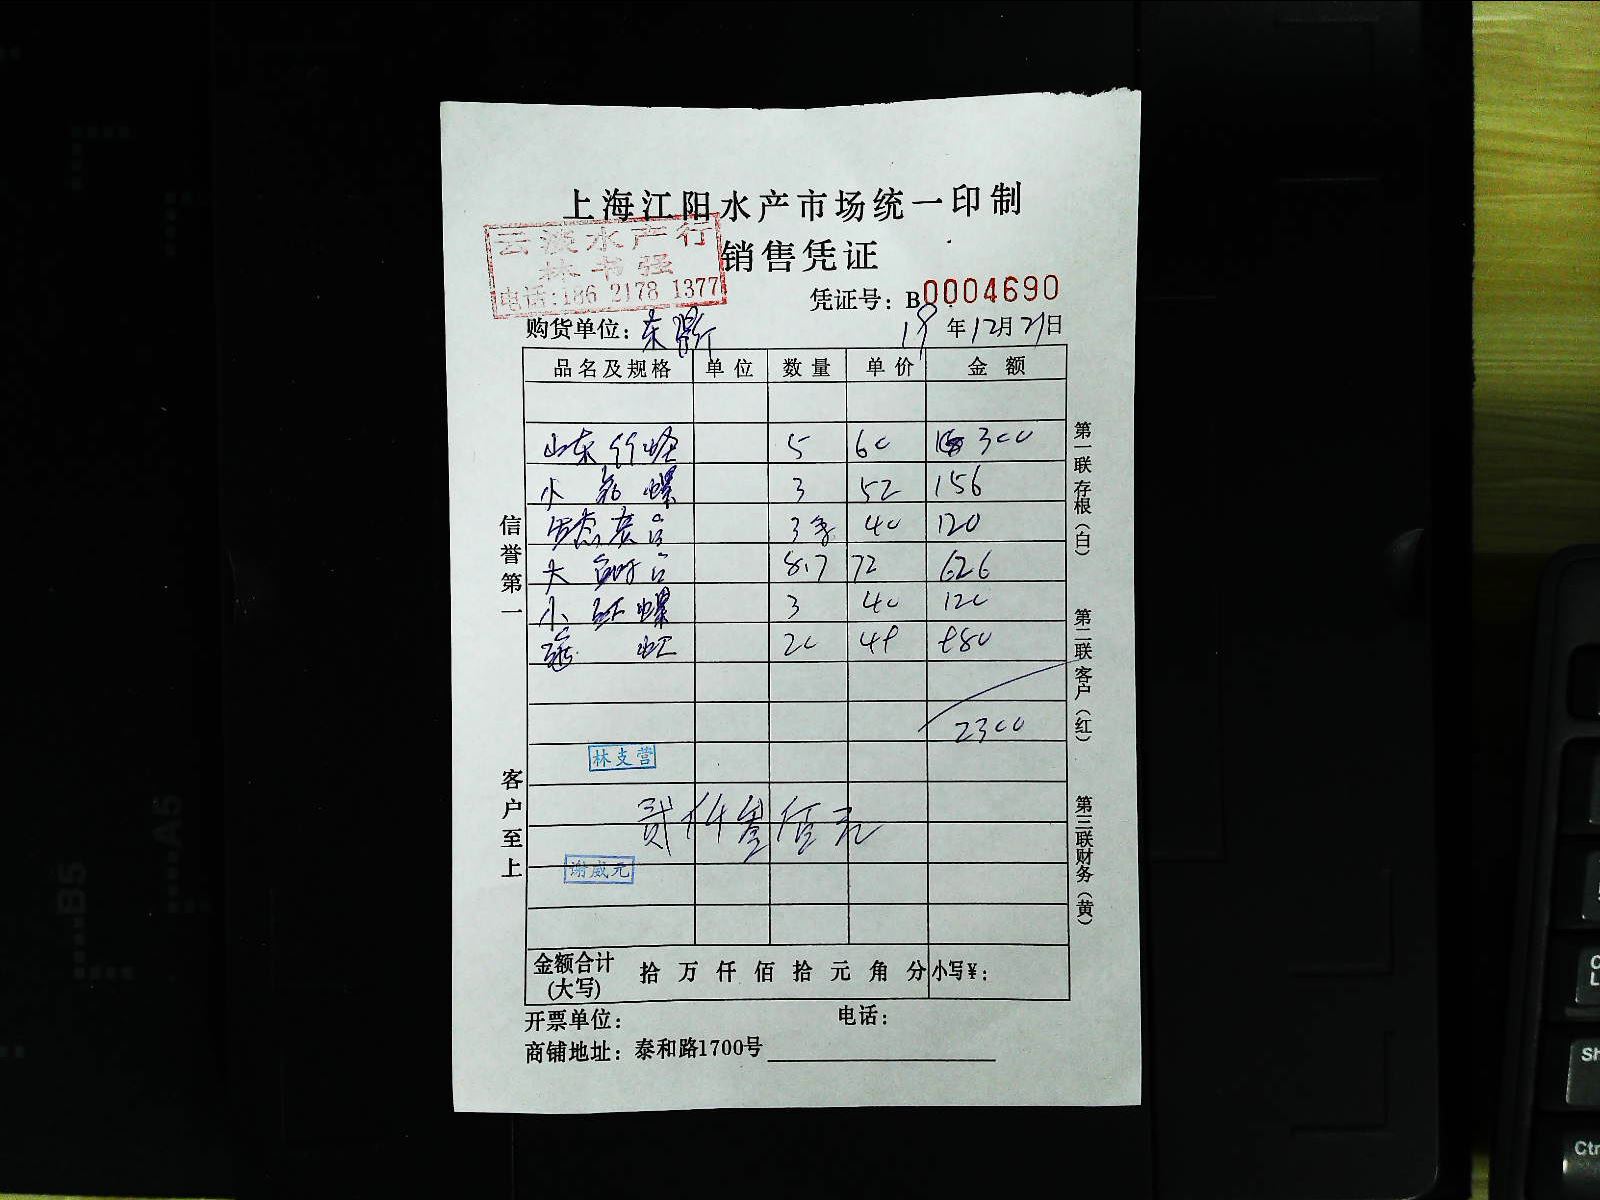 上海江阳水产市场统一印制
销售凭证
云淡水产行
林书强
电话:186 2178 1377
凭证号: B 0004690
购货单位: 东 19 年 12 月 21 日
品名及规格 单位 数量 单价 金额
山东竹蛏 5 60 300
小 螺 3 52 156
3 40 120
大 8.7 72 626
小 螺 3 40 120
20 49 980
2300
林支营
贰仟叁佰元
谢威元
金额合计(大写) 拾 万 仟 佰 拾 元 角 分 小写¥:
开票单位: 电话:
商铺地址: 泰和路1700号
信誉第一
客户至上
第一联 存根(白)
第二联 客户(红)
第三联 财务(黄)
A5
B5
Sh
Ctr